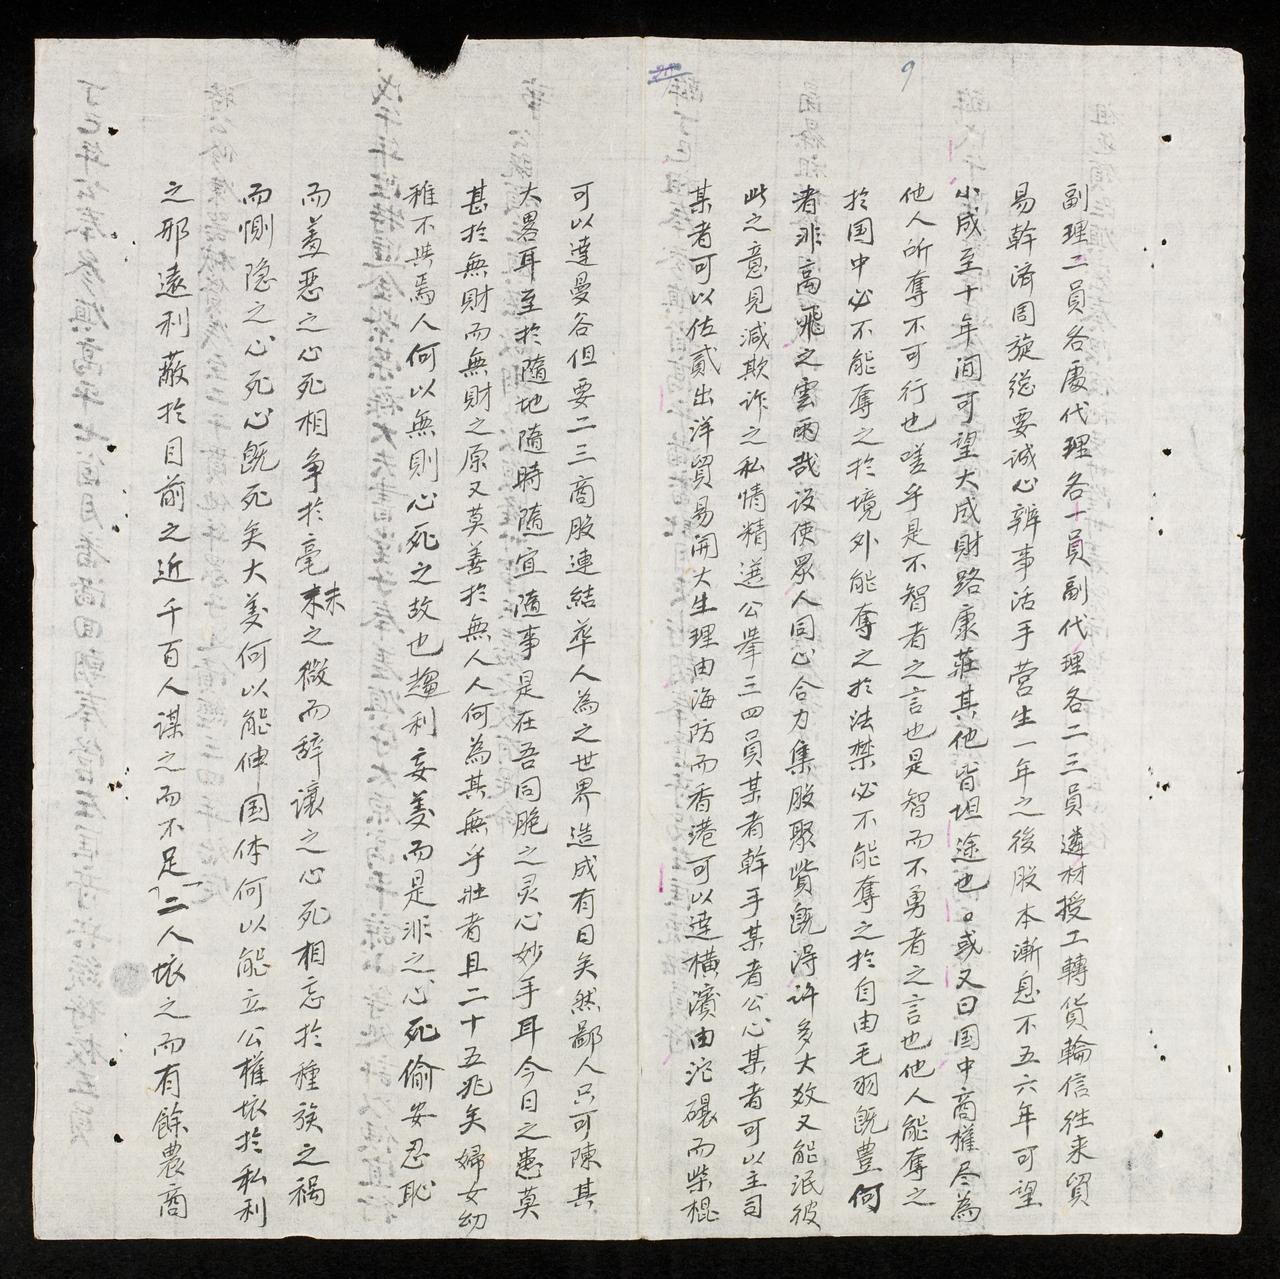 9
副理二員各處代理各十員副代理各二三員遴材授工轉貨輪信往来貿
易幹済周旋總要誠心辨事活手营生一年之後股本漸息不五六年可望
小成至十年间可望大成財路康莊其他皆坦途也。或又曰国中商權尽為
他人所奪不可行也嗟乎是不智者之言也是智而不勇者之言也他人能奪之
於国中必不能奪之於境外能奪之於法禁必不能奪之於自由毛羽既豊何
者非高飛之雲雨哉设使眾人同心合力集股聚貲既淂许多大效又能泯彼
此之意見减欺诈之私情精選公举三四員某者幹手某者公心某者可以主司
某者可以佐貳出洋貿易開大生理由海防而香港可以達横濱由沱㶞而柴棍
可以達曼谷但要二三商股連結華人為之世界造成有日矣然鄙人只可陳其
大畧耳至於隨地隨時隨宜隨事是在吾同胞之灵心妙手耳今日之患莫
甚於無財而無財之原又莫善於無人人何為其無乎壯者且二十五兆矣婦女幼
稚不與焉人何以無則心死之故也趨利妄羡而是非之心死偷安忍恥
而羞恶之心死相争於毫末之微而辞讓之心死相忘於種族之禍
而惻隐之心死心既死矣大美何以能伸国体何以能立公權坏於私利
之邪遠利蔽於目前之近千百人謀之而不足一二人坏之而有餘農商